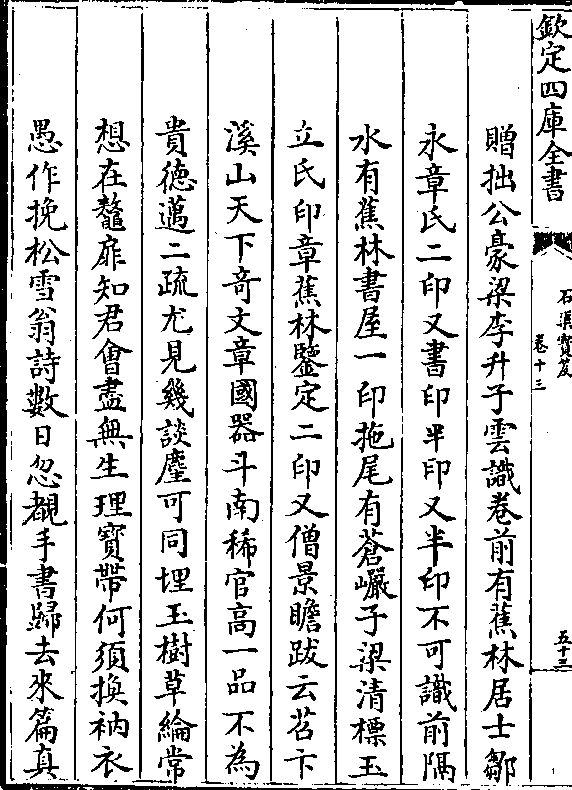 欽定四庫全書
石渠寶笈
卷十三
五十三
贈拙公豪梁李升子雲識卷前有蕉林居士鄒
永章氏二印又書印半印又半印不可識前隔
水有蕉林書屋一印拖尾有蒼巖子梁清標玉
立氏印章蕉林鑒定二印又僧景瞻跋云苕卞
溪山天下竒文章國器斗南稀官高一品不為
貴徳邁二疏尤見幾談麈可同埋玉樹草綸常
想在鼇扉知君會盡無生理寳帶何須換衲衣
愚作挽松雪翁詩數日忽覩手書歸去來篇真